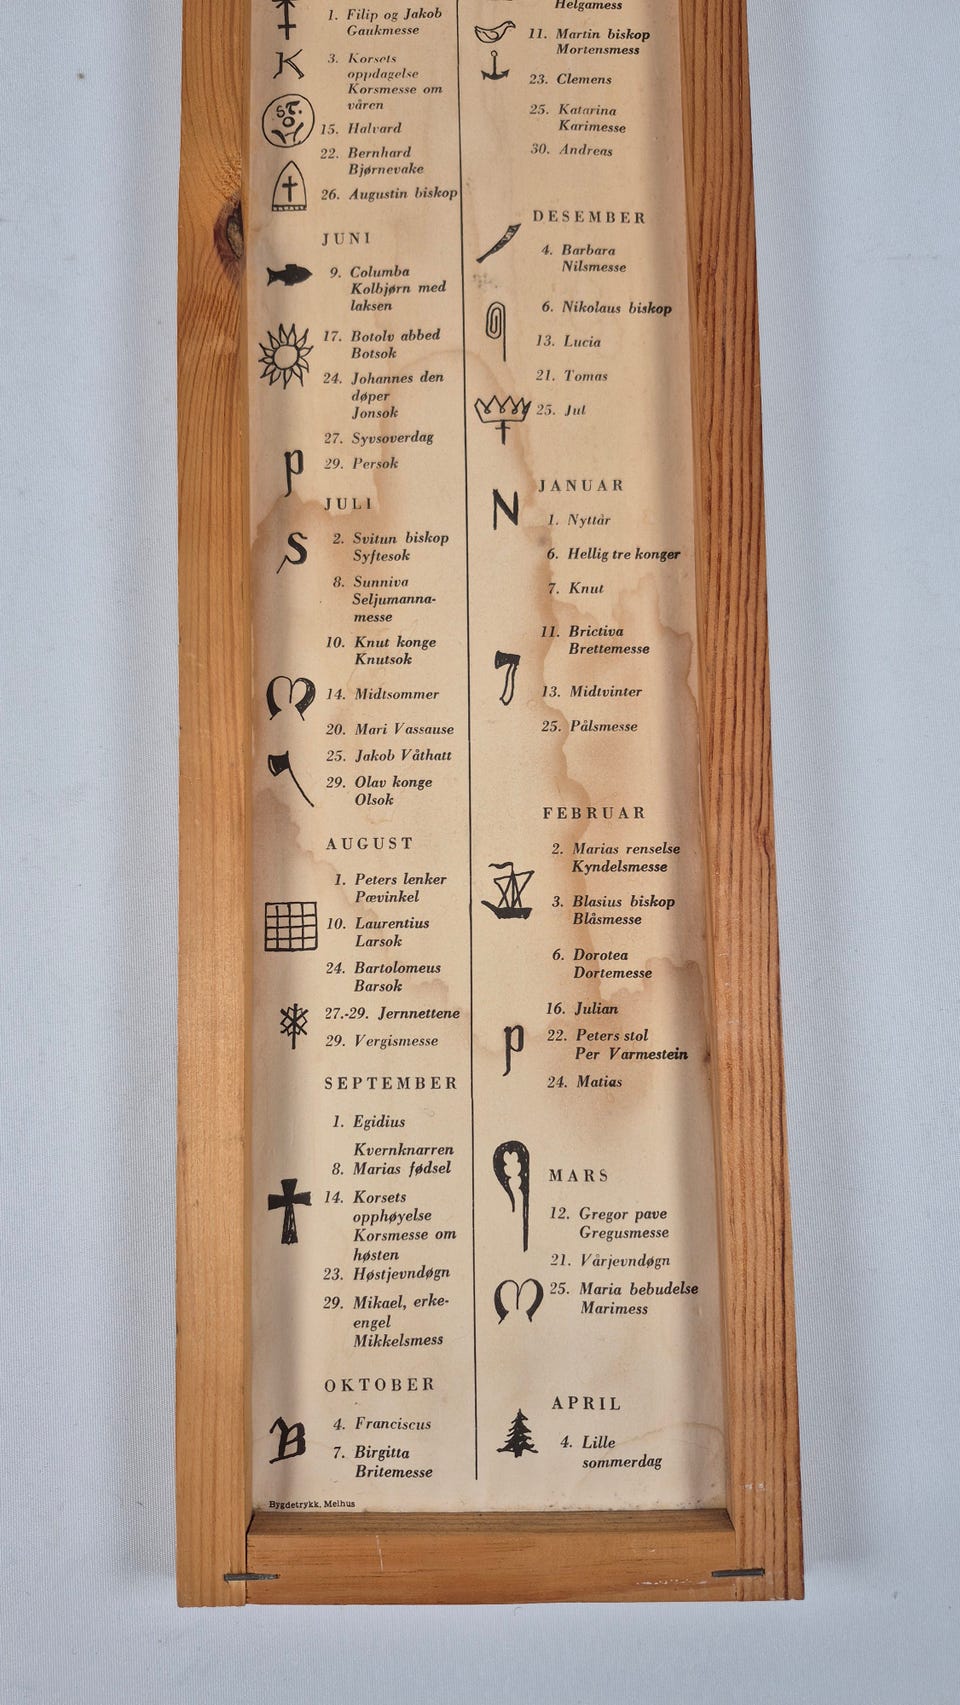 1. Filip og Jakob
Gaukmesse
3. Korsets
oppdagelse
Korsmesse om
våren
ST.
O
15. Halvard
22. Bernhard
Bjørnevake
26. Augustin biskop
JUNI
9. Columba
Kolbjørn med
laksen
17. Botolv abbed
Botsok
24. Johannes den
døper
Jonsok
27. Syvsoverdag
P
29. Persok
JULI
S
2. Svitun biskop
Syftesok
8. Sunniva
Seljumanna-
messe
10. Knut konge
Knutsok
14. Midtsommer
20. Mari Vassause
25. Jakob Våthatt
29. Olav konge
Olsok
AUGUST
1. Peters lenker
Pævinkel
10. Laurentius
Larsok
24. Bartolomeus
Barsok
27.-29. Jernnettene
29. Vergismesse
SEPTEMBER
1. Egidius
Kvernknarren
8. Marias fødsel
14. Korsets
opphøyelse
Korsmesse om
høsten
23. Høstjevndøgn
29. Mikael, erke-
engel
Mikkelsmess
OKTOBER
4. Franciscus
B
7. Birgitta
Britemesse
Bygdetrykk, Melhus
Helgamess
11. Martin biskop
Mortensmess
23. Clemens
25. Katarina
Karimesse
30. Andreas
DESEMBER
4. Barbara
Nilsmesse
6. Nikolaus biskop
13. Lucia
21. Tomas
25. Jul
JANUAR
N
1. Nyttår
6. Hellig tre konger
7. Knut
11. Brictiva
Brettemesse
13. Midtvinter
25. Pålsmesse
FEBRUAR
2. Marias renselse
Kyndelsmesse
3. Blasius biskop
Blåsmesse
6. Dorotea
Dortemesse
16. Julian
P
22. Peters stol
Per Varmestein
24. Matias
MARS
12. Gregor pave
Gregusmesse
21. Vårjevndøgn
25. Maria bebudelse
Marimess
APRIL
4. Lille
sommerdag